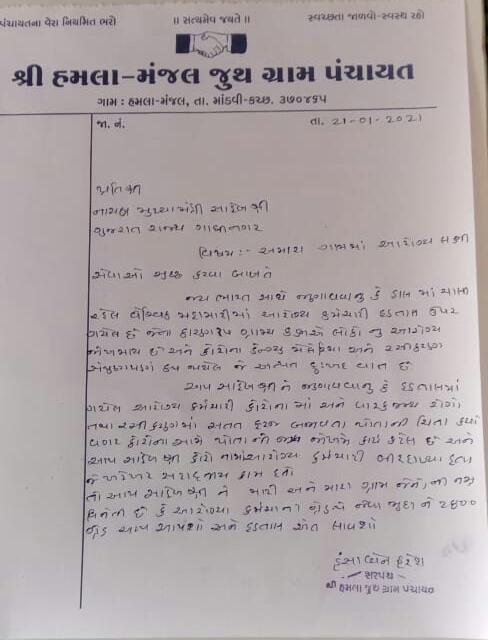 પંચાયતના વેરા નિયમિત ભરો
॥ સત્યમેવ જયતે ॥
સ્વચ્છતા જાળવો-સ્વસ્થ રહો
શ્રી હમલા-મંજલ જુથ ગ્રામ પંચાયત
ગામ : હમલા-મંજલ, તા. માંડવી-કચ્છ. ૩૭૦૪૬૫
જા. નં.
તા. 21-01-2021
પ્રતિ શ્રી
નાયબ મુખ્યમંત્રી સાહેબ શ્રી
ગુજરાત રાજ્ય ગાંધીનગર
વિષય :- અમારા ગામમાં આરોગ્ય લક્ષી
સેવાઓ શરૂ કરવા બાબતે
જય ભારત સાથે જણાવવાનું કે હાલ માં ચાલી
રહેલ વૈશ્વિક મહામારીમાં આરોગ્ય કર્મચારી હડતાલ ઉપર
ગયેલ છે જેના કારણે ગ્રામ્ય કક્ષાએ લોકો નુ આરોગ્ય
જોખમાય છે અને કોરોના મેલેરિયા અને રસીકરણ
બંધ થયેલ જે અત્યંત દુઃખદ વાત છે
આપ સાહેબ શ્રી ને જણાવવાનું કે હડતાલમાં
ગયેલ આરોગ્ય કર્મચારી કોરોના માં અને પાણીજન્ય રોગો
તથા રસીકરણમાં સતત ફરજ પોતાની ચિંતા કર્યા
વગર કોરોના સામે પોતાની જાન જોખમે કાર્ય કરેલ છે અને
આપ સાહેબ શ્રી આરોગ્ય કર્મચારી બીરદાવ્યા હતા
જે ખરેખર સરાહનીય કામ હતો
તો આપ સાહેબ શ્રી ને મારી અને મારા ગ્રામ જનો ની નમ્ર
વિનંતી છે કે આરોગ્ય કર્મચારી ગ્રેડપે ને ૨૪૦૦
ગ્રેડ આપ આપશો અને હડતાલ અંત લાવશો
હંસાબેન હરેશ
સરપંચ
શ્રી હમલા જુથ ગ્રામ પંચાયત